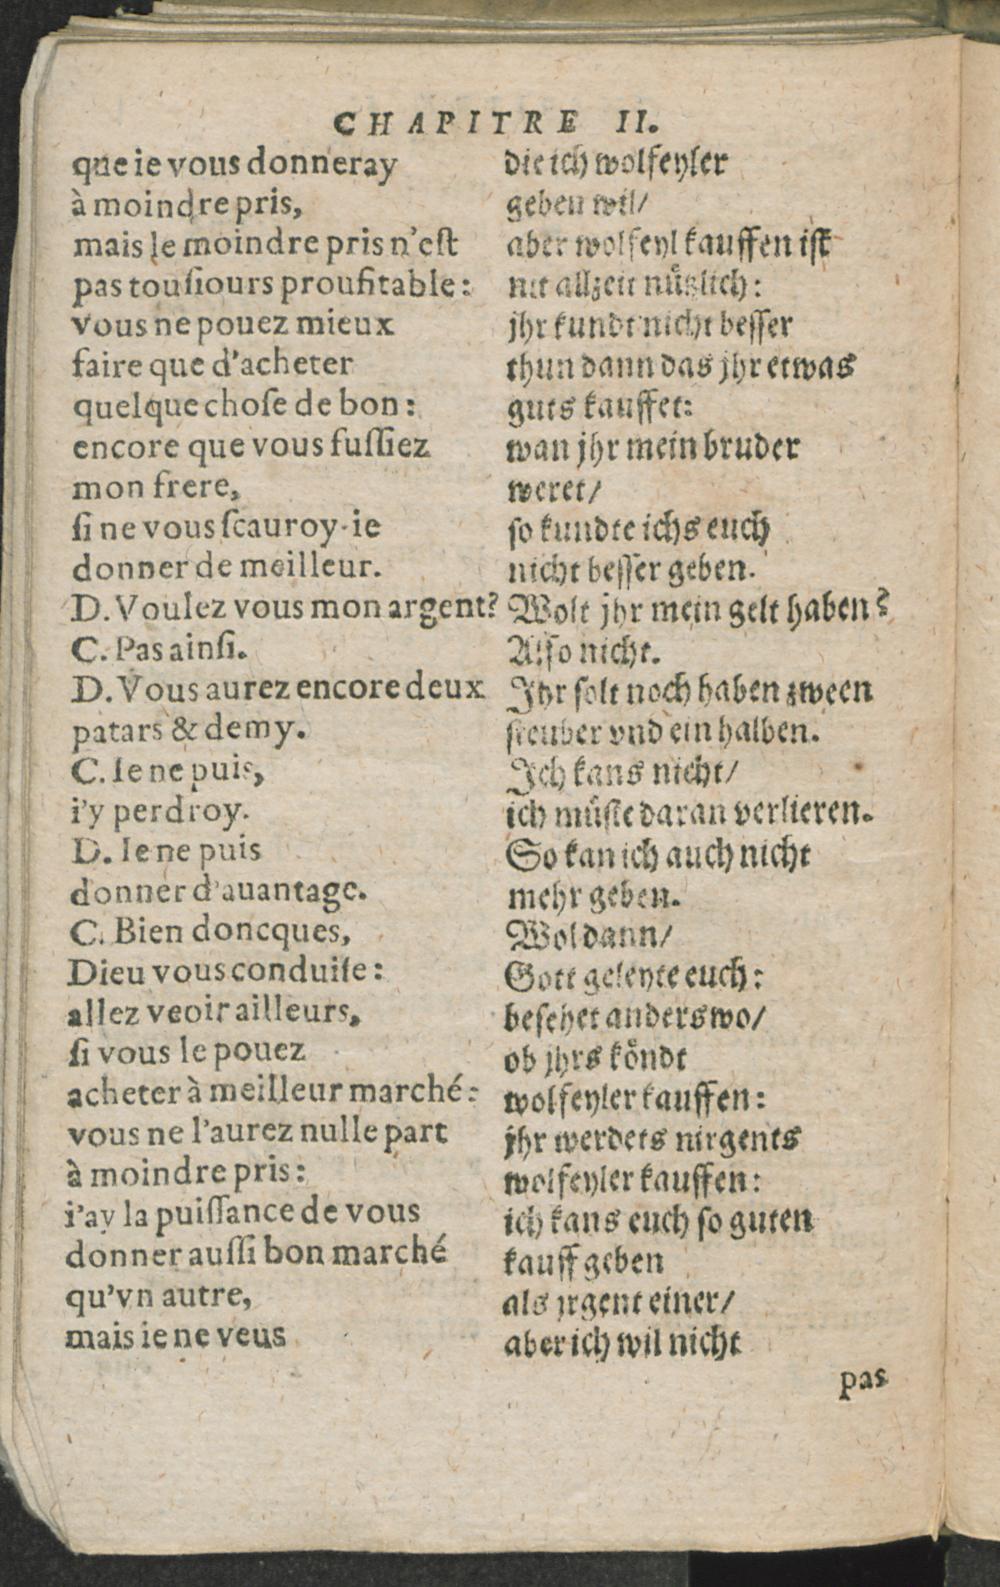 CHAPITRE II.
que ie vous donneray
à moindre pris,
mais le moindre pris n'eſt
pas touſiours proufitable:
vous ne pouez mieux
faire que d'acheter
quelque choſe de bon:
encore que vous fuſſiez
mon frere,
ſi ne vous ſcauroy-ie
donner de meilleur.
D. Voulez vous mon argent?
C. Pas ainſi.
D. Vous aurez encore deux
patars & demy.
C. Ie ne puis,
i'y perdroy.
D. Ie ne puis
donner d'auantage.
C. Bien doncques,
Dieu vous conduiſe:
allez veoir ailleurs,
ſi vous le pouez
acheter à meilleur marché:
vous ne l'aurez nulle part
à moindre pris:
i'ay la puiſſance de vous
donner auſſi bon marché
qu'vn autre,
mais ie ne veus
die ich wolfeyler
geben wil/
aber wolfeyl kauffen iſt
nit allzeit nützlich:
jhr kundt nicht beſſer
thun dann das jhr etwas
guts kauffet:
wan jhr mein bruder
weret/
ſo kundte ichs euch
nicht beſſer geben.
Wolt jhr mein gelt haben?
Alſo nicht.
Ihr ſolt noch haben zween
ſteuber vnd ein halben.
Ich kans nicht/
ich müſte daran verlieren.
So kan ich auch nicht
mehr geben.
Wol dann/
Gott geleyte euch:
beſehet anderswo/
ob jhrs köndt
wolfeyler kauffen:
jhr werdets nirgents
wolfeyler kauffen:
ich kans euch ſo guten
kauff geben
als jrgent einer/
aber ich wil nicht
pas